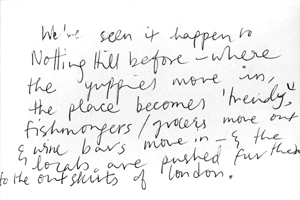 We've seen it happen to
Notting Hill before – where
the yuppies move in,
the place becomes 'trendy',
fishmongers/grocers move out
& wine bars move in – & the
locals are pushed further
to the outskirts of London.